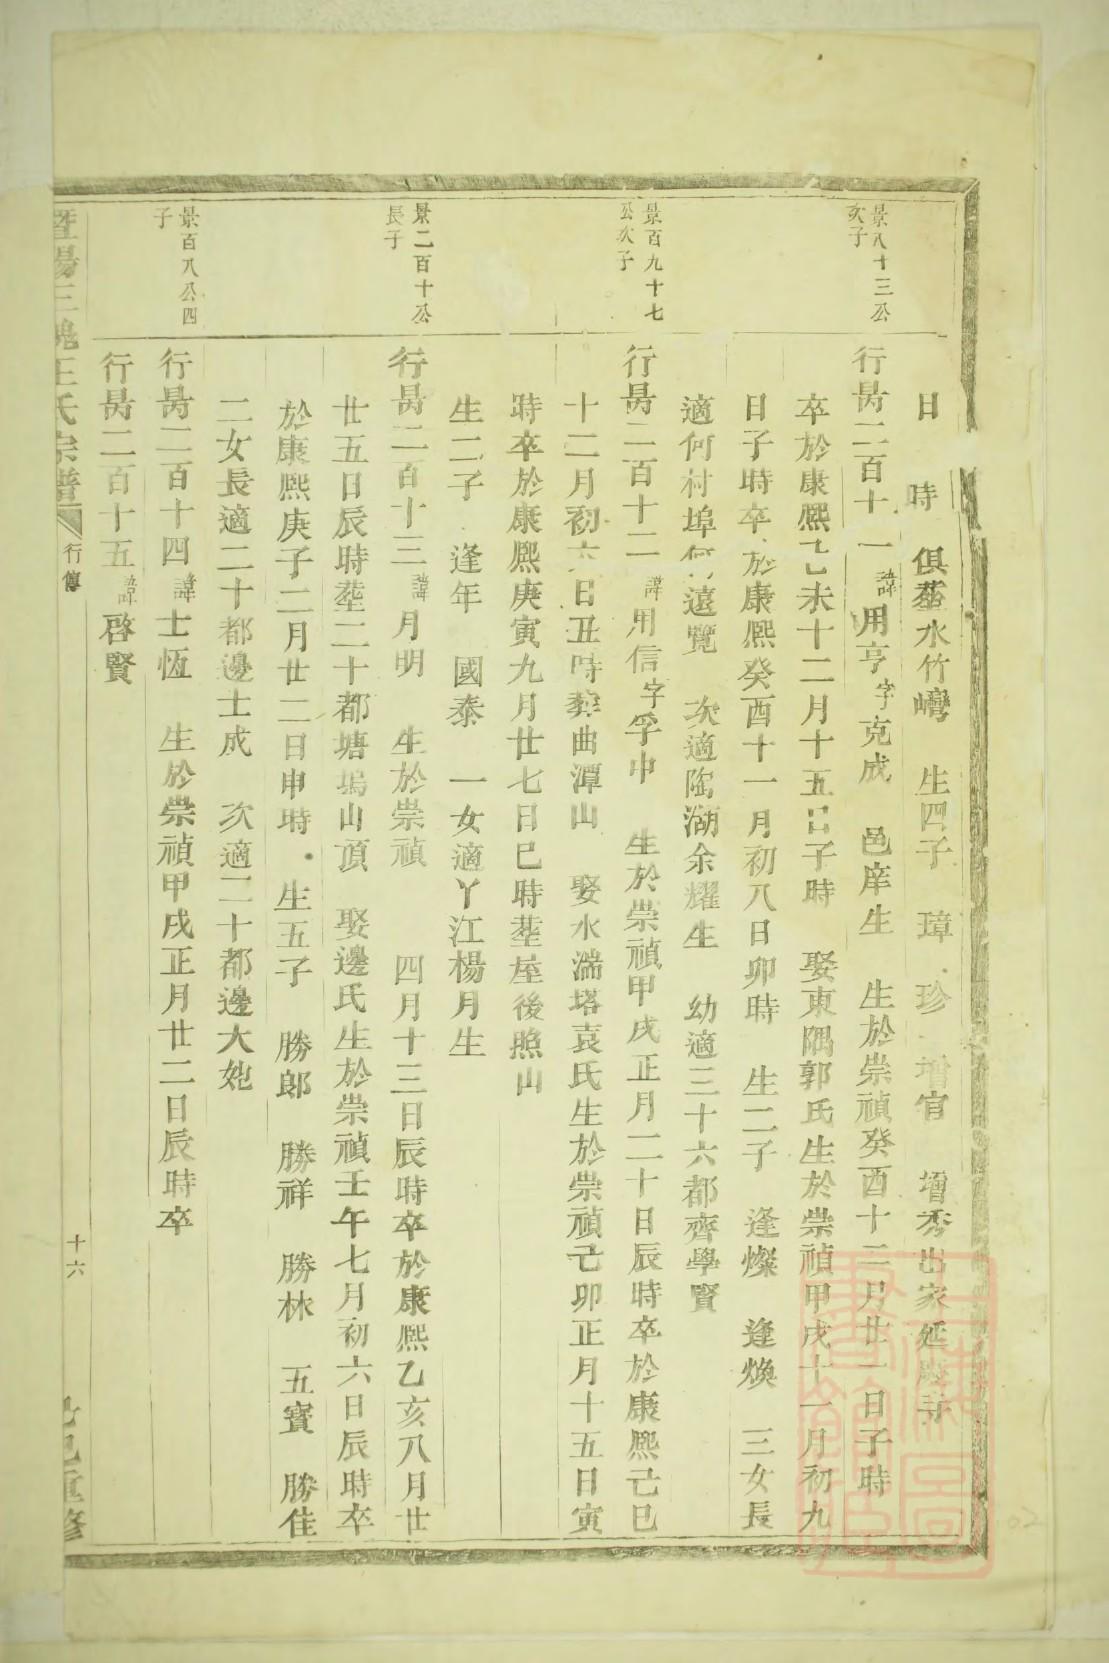 日　時　俱塟水竹灣　生四子　璋　珍　增官　增秀出家延慶寺
景八十三公次子
行昺二百十一諱用亨字克成　邑庠生　生於崇禎癸酉十二月廿一日子時
卒於康熙己未十二月十五日子時　娶東隅郭氏生於崇禎甲戌十一月初九
日子時卒於康熙癸酉十一月初八日卯時　生二子　逢燦　逢煥　三女長
適何村埠何遠覽　次適陶湖余耀生　幼適三十六都齊學賢
景百九十七公次子
行昺二百十二諱用信字孚中　生於崇禎甲戌正月二十日辰時卒於康熙己巳
十二月初六日丑時葬曲潭山　娶水湍塔袁氏生於崇禎己卯正月十五日寅
時卒於康熙庚寅九月廿七日巳時塟屋後照山
生二子　逢年　國泰　一女適丫江楊月生
景二百十公長子
行昺二百十三諱月明　生於崇禎　四月十三日辰時卒於康熙乙亥八月廿
廿五日辰時塟二十都塘塢山頂　娶邊氏生於崇禎壬午七月初六日辰時卒
於康熙庚子二月廿二日申時　生五子　勝郎　勝祥　勝林　五寶　勝佳
二女長適二十都邊士成　次適二十都邊大
景百八公四子
行昺二百十四諱士恆　生於崇禎甲戌正月廿二日辰時卒
行昺二百十五諱啓賢
暨陽三槐王氏宗譜　行傳　十六　己巳重修